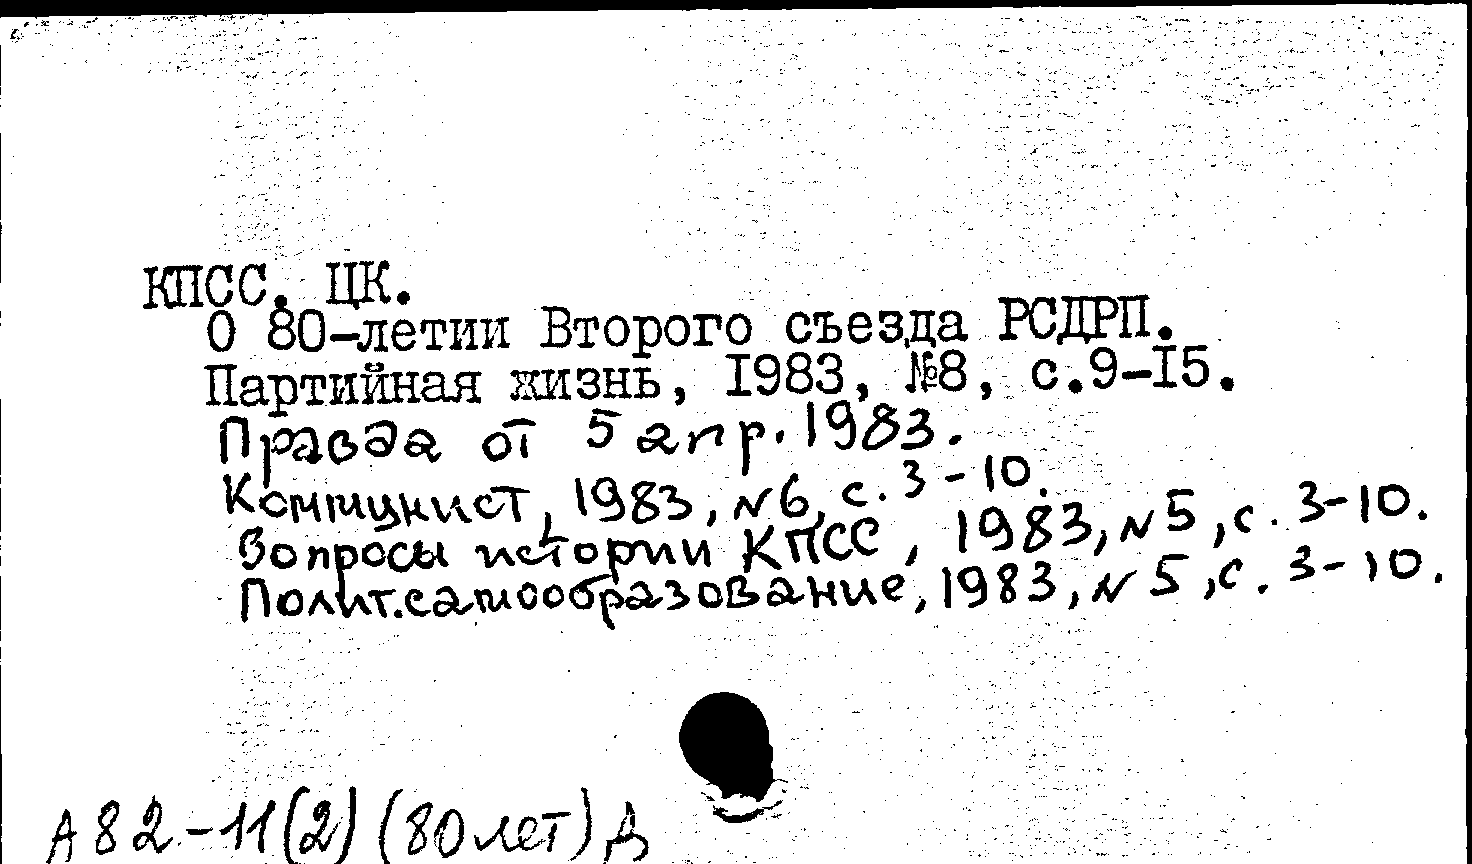 КПСС. ЦК.
О 80-летии Второго съезда РСДРП.
Партийная жизнь, I983, №8, с.9-I5.
Правда от 5 апр. 1983.
Коммунист, 1983, N6, с. 3-10.
Вопросы истории КПСС, 1983, N5, с. 3-10.
Полит.самообразование, 1983, N5, с. 3-10.
А82-11(2) (80 лет) д